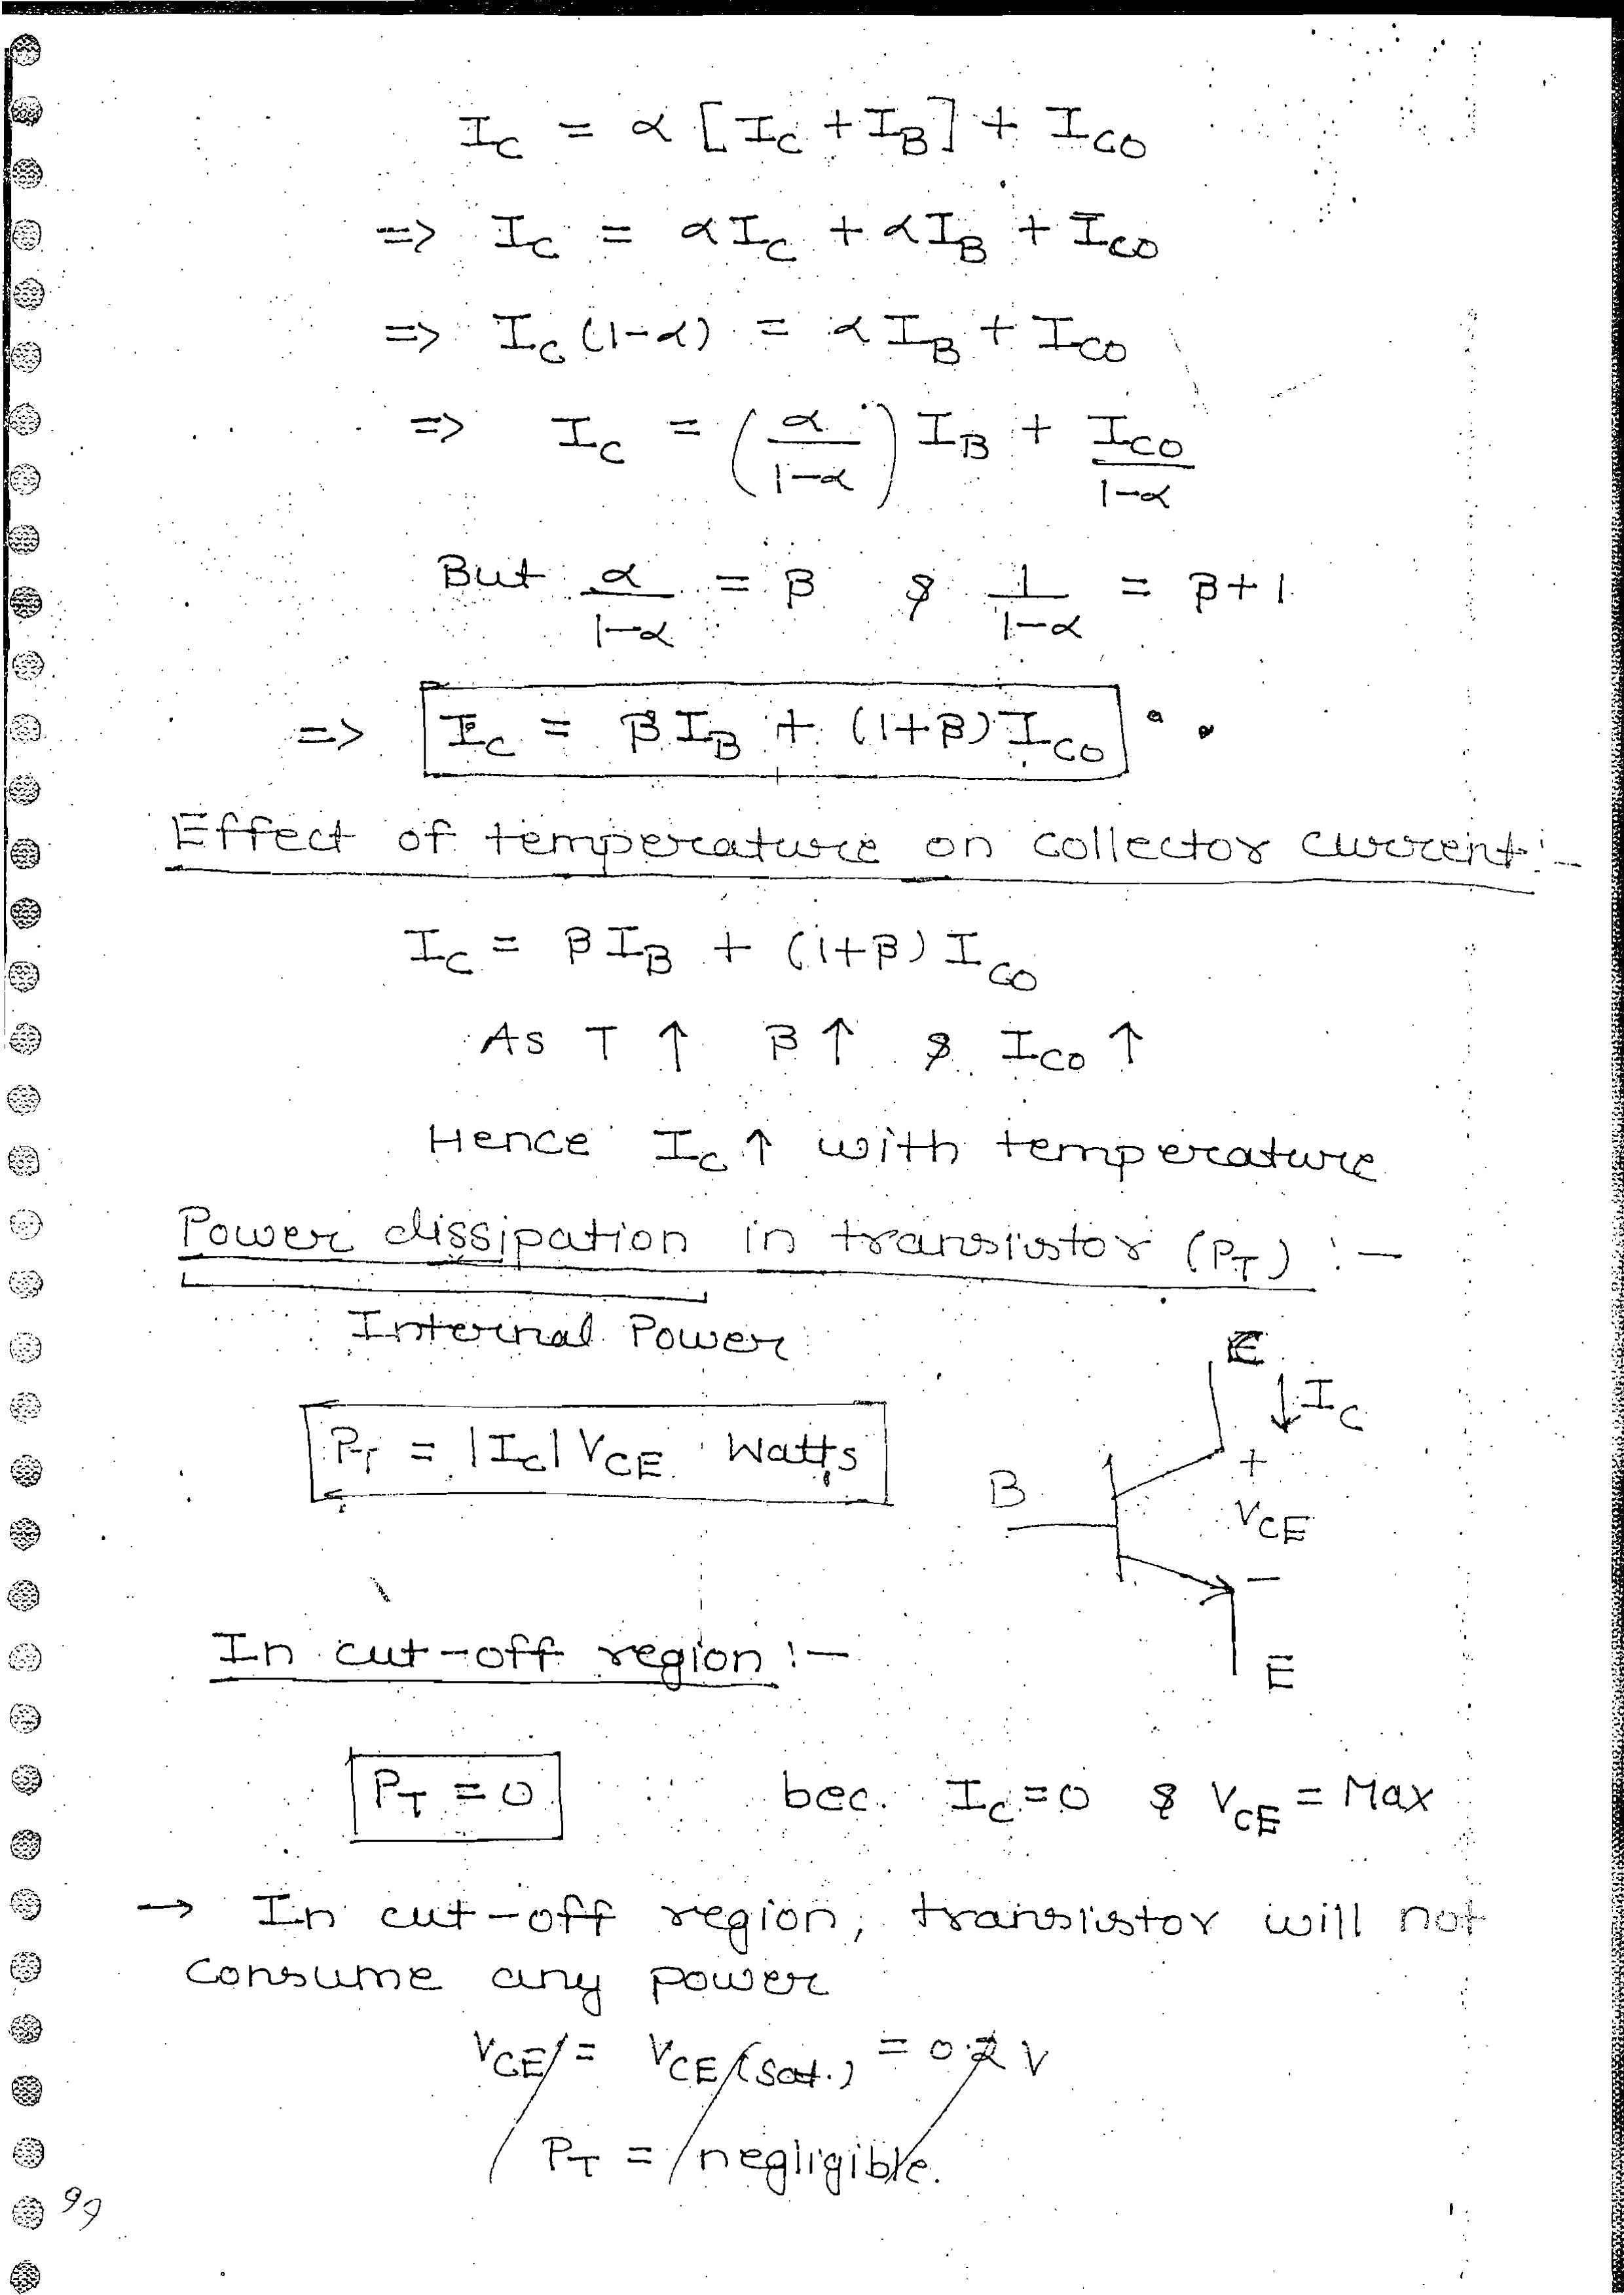 I_C = α [I_C + I_B] + I_CO
=> I_C = αI_C + αI_B + I_CO
=> I_C (1-α) = αI_B + I_CO
=> I_C = (α/(1-α)) I_B + I_CO/(1-α)
But α/(1-α) = β & 1/(1-α) = β+1
=> I_C = βI_B + (1+β) I_CO
Effect of temperature on collector current :-
I_C = βI_B + (1+β) I_CO
As T ↑ β ↑ & I_CO ↑
Hence I_C ↑ with temperature
Power dissipation in transistor (P_T) :-
Internal Power
P_T = |I_C| V_CE Watts
↓ I_C
B
+
V_CE
-
E
In cut-off region :-
P_T = 0 bec. I_C = 0 & V_CE = Max
→ In cut-off region, transistor will not
consume any power
V_CE = V_CE (sat.) = 0.2 V
P_T = negligible.